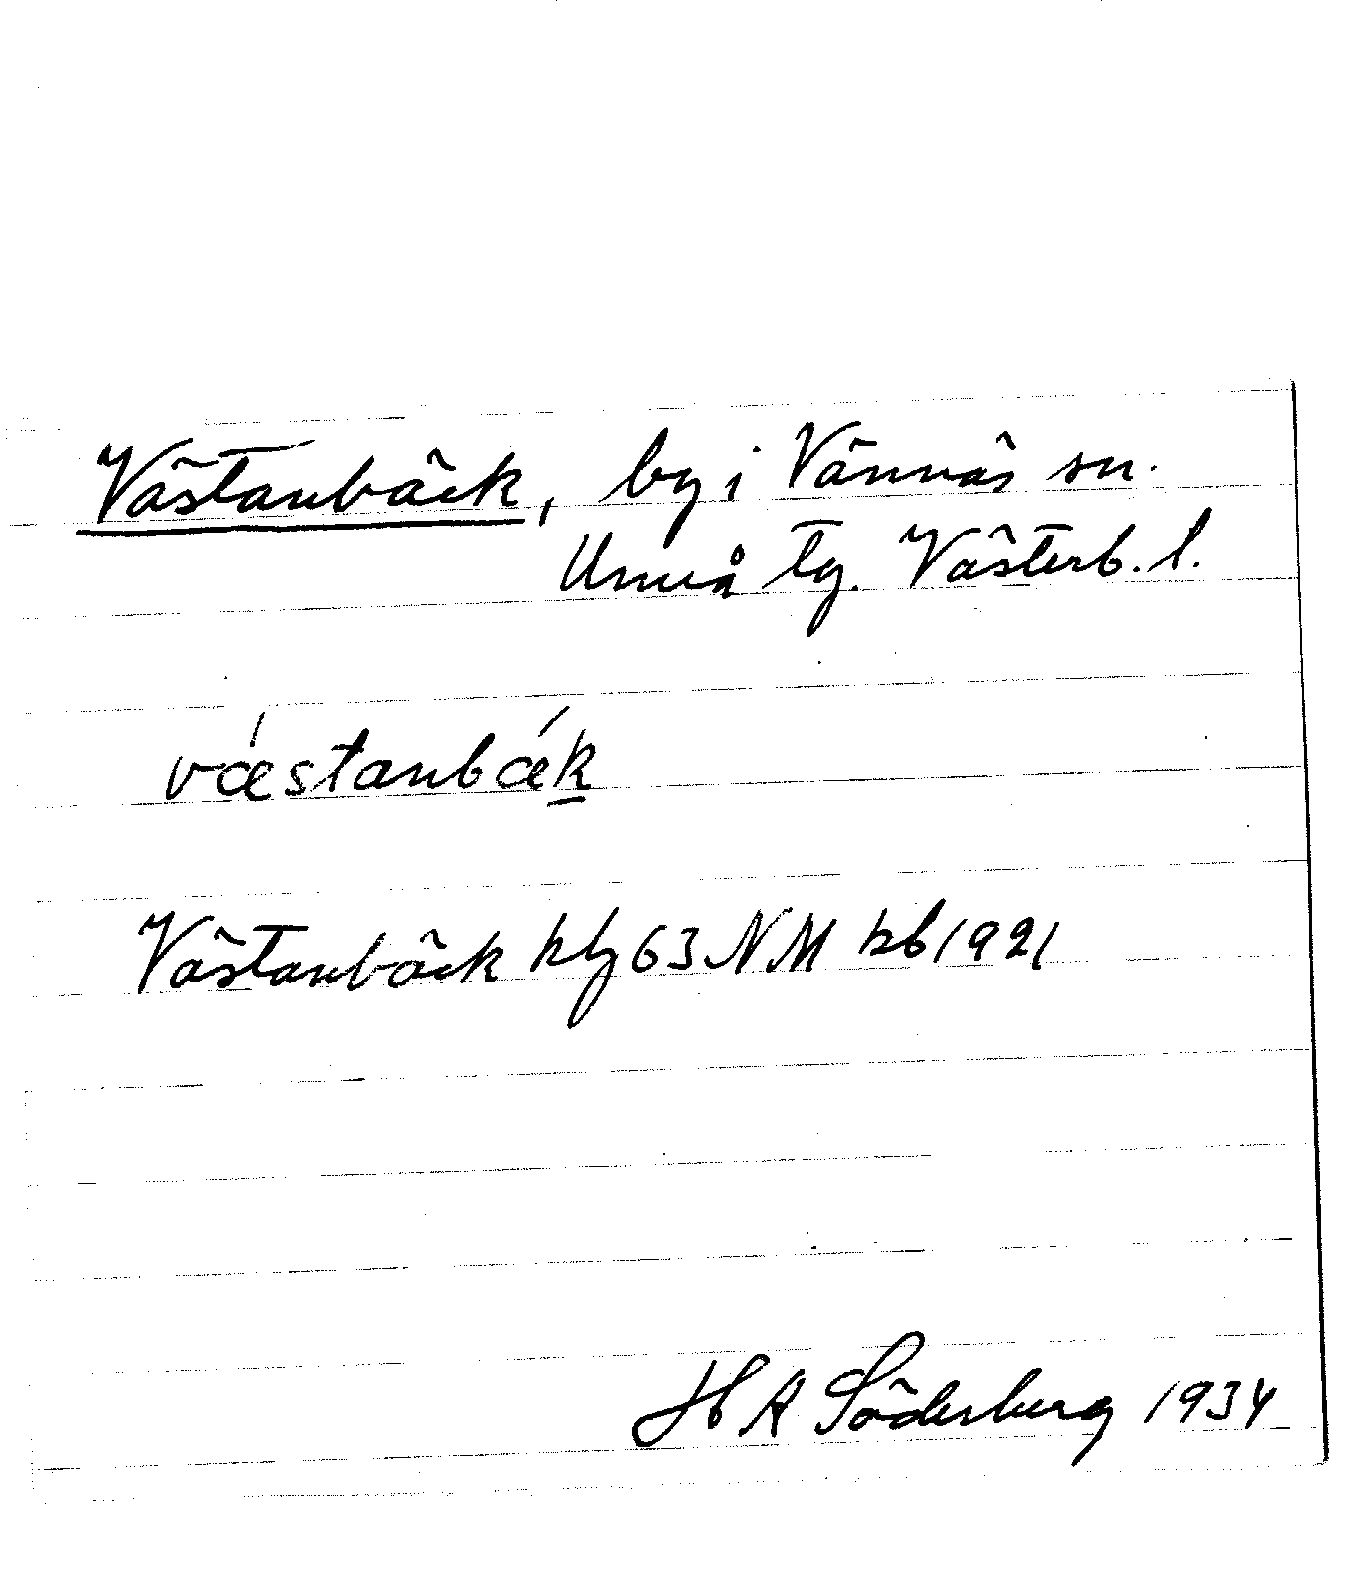 Västanbäck, by i Vännäs sn.
Umeå tg. Västerb. l.
væ´stanbæ´k
Västanbäck kbl 63 NM kb 1921
H R Söderberg 1934